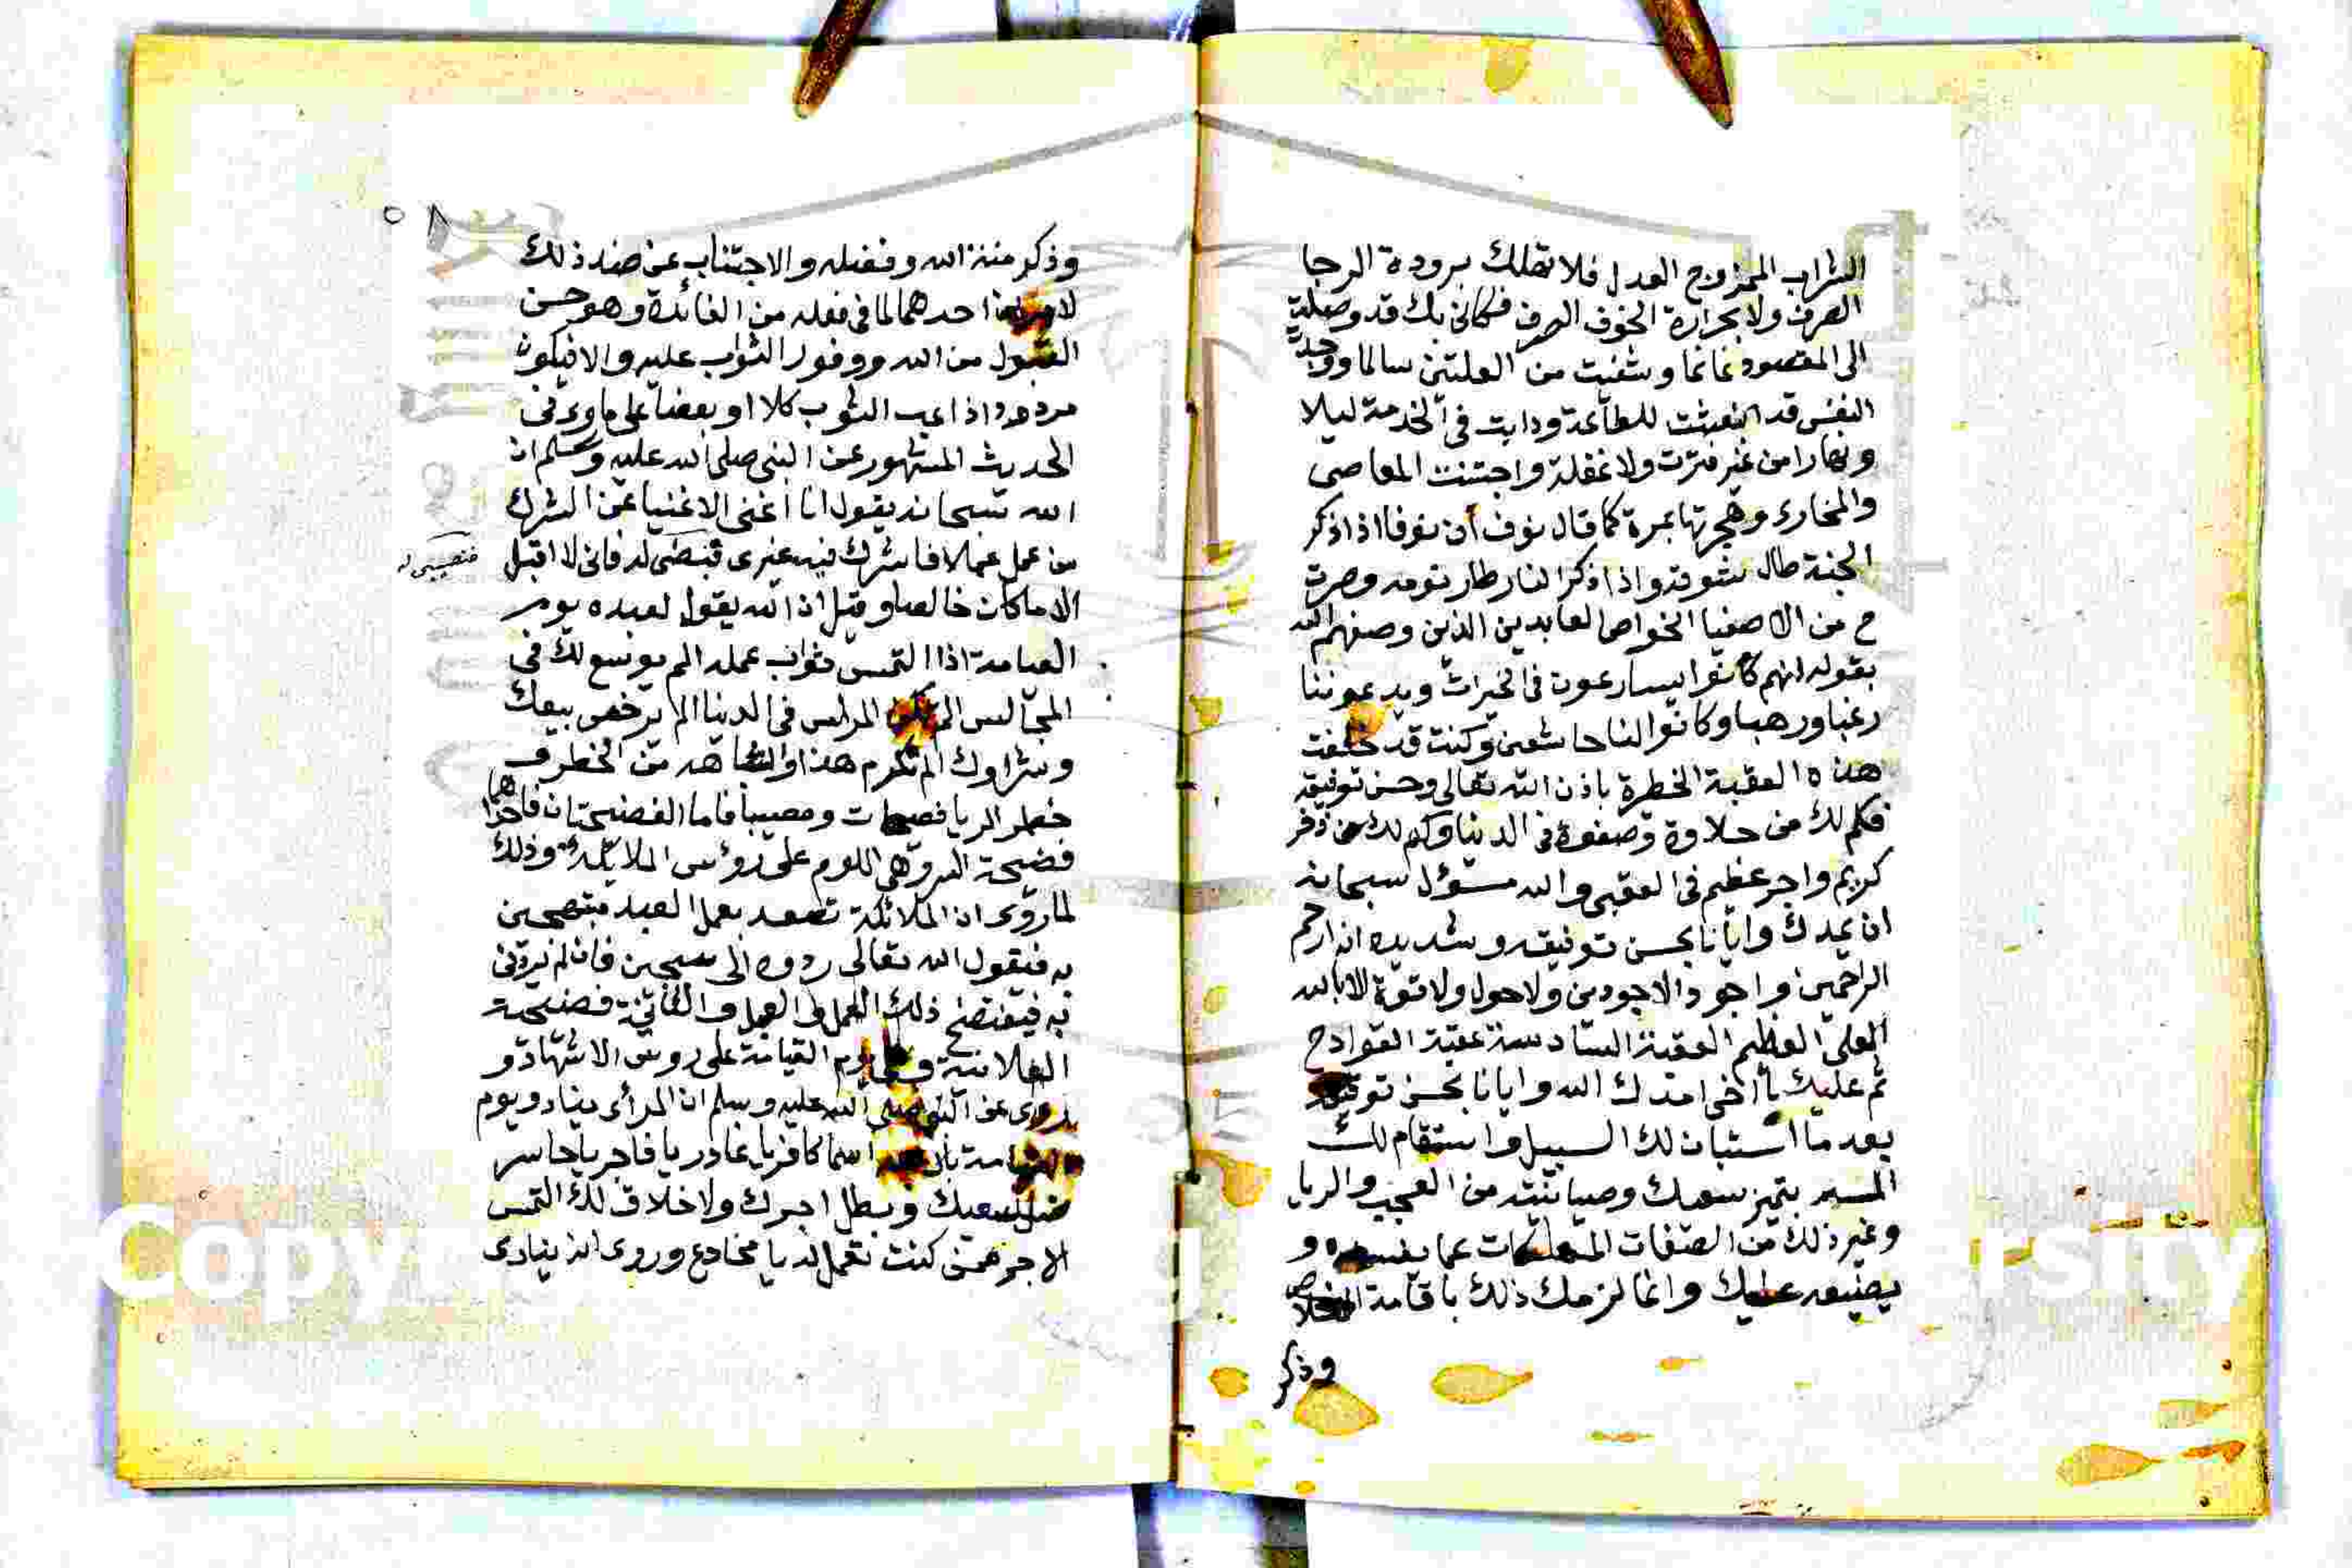 الشراب الممزوج العدل فلا تهلك ببرودة الرجا
الصرف ولا بحرارة الخوف الصرف فكانى بك قد وصلت
الى المقصود غانما وشفيت من العلتين سالما ووجدت
النفس قد انبعثت للطاعة ودابت في الخدمة ليلا
ونهارا من غير فترت ولا غفلة واجتنبت المعاصى
والمخازى وهجرتها بمرة كما قال نوف ان نوفا اذا ذكر
الجنة طال شوقه واذا ذكر النار طار نومه وصرت
ح من الاصفيا الخواص العابدين الذين وصفهم الله
بقوله انهم كانوا يسارعون في الخيرات ويدعوننا
رغبا ورهبا وكانوا لنا خاشعين وكنت قد خلفت
هذه العقبة الخطرة باذن الله تعالى وحسن توفيقه
فكم لك من حلاوة وصفوة في الدنيا وكم لك من ذخر
كريم واجر عظيم في العقبى والله مسؤل سبحانه
ان يمدك وايانا بحسن توفيقه وتسديده انه ارحم
الراحمين واجود الاجودين ولا حول ولا قوة الا بالله
العلى العظيم العقبة السادسة عقبة القوادح
ثم عليك يا اخى امدك الله وايانا بحسن توفيقه
بعد ما استبان لك السبيل واستقام لك
المسير بتميز سعيك وصيانته من العجب والريا
وغير ذلك من الصفات عما يفسده و
يضيعه عليك وانما لزمك ذلك باقامة الاخلاص
وذكر
٥٨
وذكر منة الله وفضله والاجتناب عن ضد ذلك
احدهما لما في فعله من الفائدة وهو حسن
القبول من الله ووفور الثواب عليه والا فيكون
مردود اذاهب الثوب كلا او بعضا على ما روى في
الحديث المشهور عن النبى صلى الله عليه وسلم ان
الله سبحانه يقول انا اغنى الاغنيا عن الشرك
من عمل عملا فاشرك فيه غيرى فنصيبى له فانى لا اقبل
فنصيبى له
الا ما كان خالصا وقيل ان الله يقول لعبده يوم
القيامة اذا التمس ثواب عمله الم يوسع لك في
المجالس الم تكن المراس في الدنيا الم يرخص بيعك
وشراوك الم تكرم هذا واشباهه من الخطر ف
خطر الريا فضيحتان ومصيبتا فاما الفضيحتان فاحداهما
فضيحة السر وهى اللوم على رؤس الملائكة وذلك
لما روى ان الملائكة تصعد بعمل العبد مبتهجين
به فيقول الله تعالى ردوه الى سجين فانه لم يردنى
به فيفتضح ذلك العمل والعبد والثانية فضيحة
العلانية وهى يوم القيامة على روس الاشهاد و
روى عن النبى صلى الله عليه وسلم ان المرأى ينادو يوم
القيامة اسما كافر يا غادر يا فاجر يا خاسر
ضل سعيك وبطل اجرك ولا خلاق لك التمس
الاجر ممن كنت تعمل له يا مخادع وروى انه ينادى